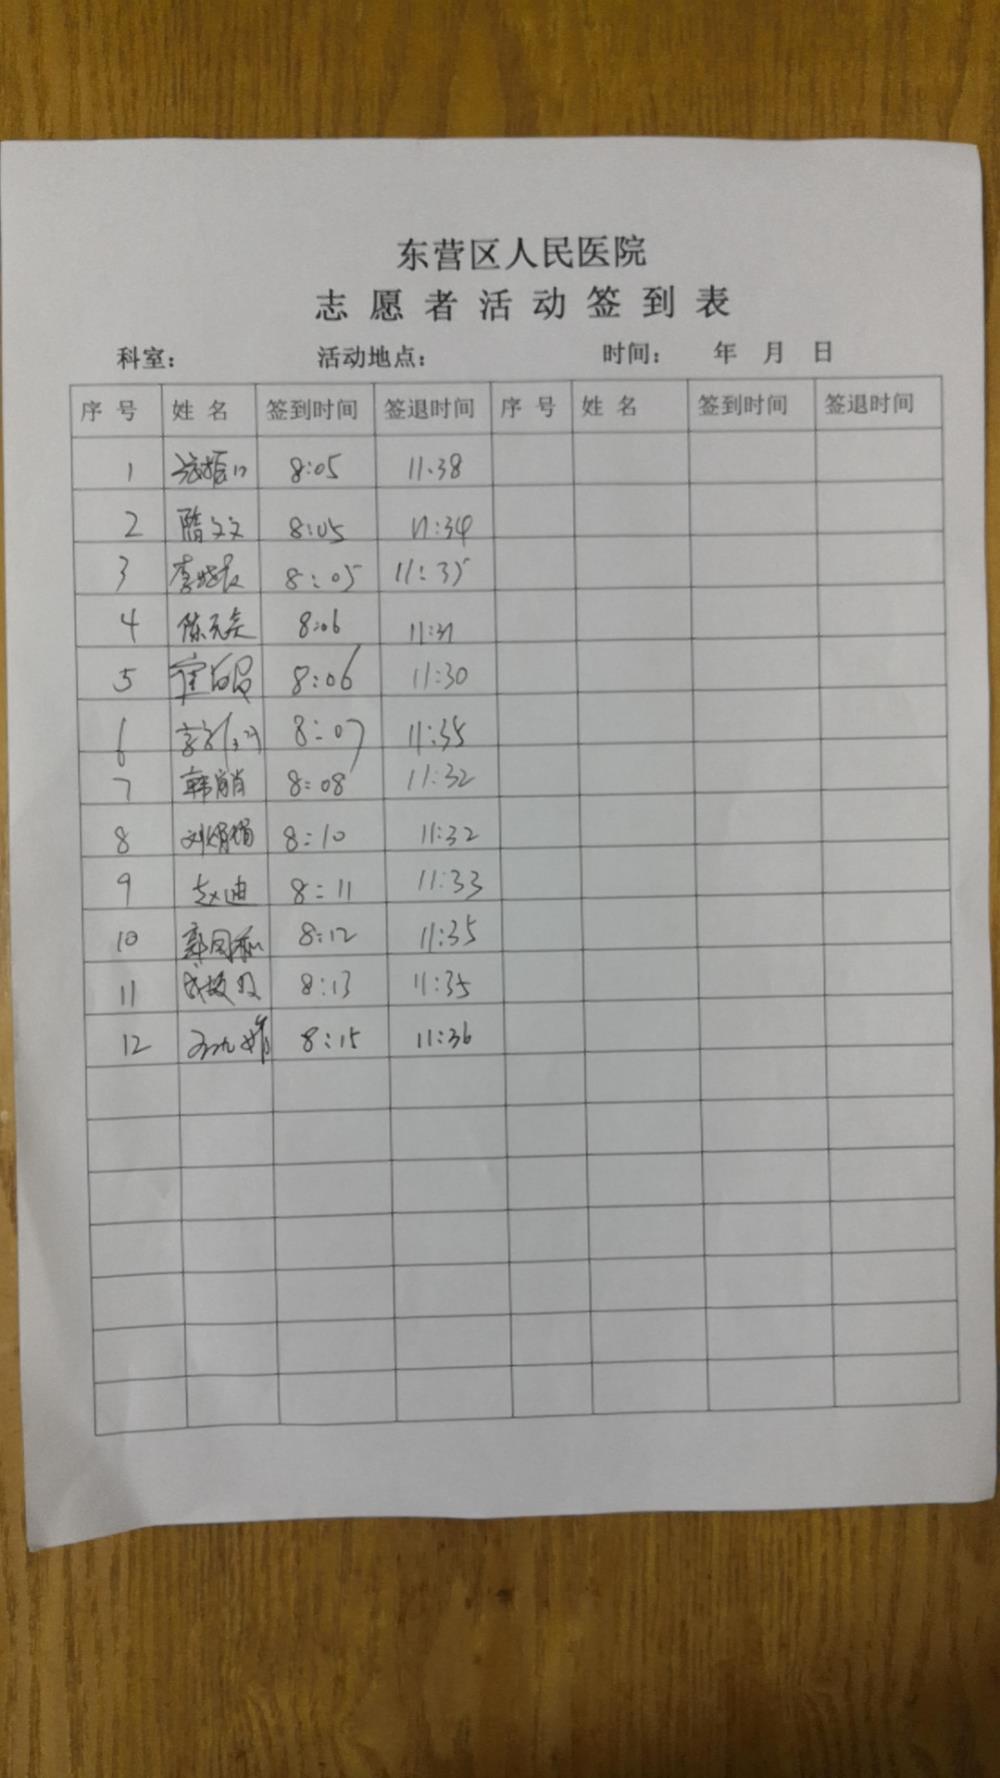 东营区人民医院
志愿者活动签到表
科室： 活动地点： 时间： 年 月 日
序号 姓名 签到时间 签退时间 序号 姓名 签到时间 签退时间
1 8:05 11:38
2 隋文文 8:05 11:34
3 8:05 11:35
4 陈元英 8:06
5 8:06 11:30
6 8:07 11:35
7 韩肖肖 8:08 11:32
8 刘娟娟 8:10 11:32
9 赵迪 8:11 11:33
10 8:12 11:35
11 8:13 11:35
12 8:15 11:36